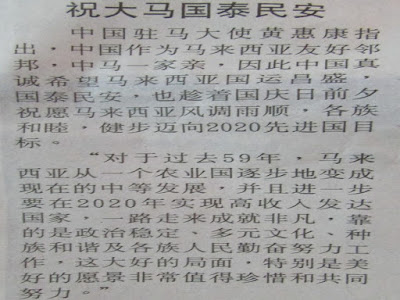 祝大马国泰民安
中国驻马大使黄惠康指
出，中国作为马来西亚友好邻
邦，中马一家亲，因此中国真
诚希望马来西亚国运昌盛，
国泰民安，也趁着国庆日前夕
祝愿马来西亚风调雨顺，各族
和睦，健步迈向2020先进国目
标。
“对于过去59年，马来
西亚从一个农业国逐步地变成
现在的中等发展，并且进一步
要在2020年实现高收入发达
国家，一路走来成就非凡，靠
的是政治稳定、多元文化、种
族和谐及各族人民勤奋努力工
作，这大好的局面，特别是美
好的愿景非常值得珍惜和共同
努力。”